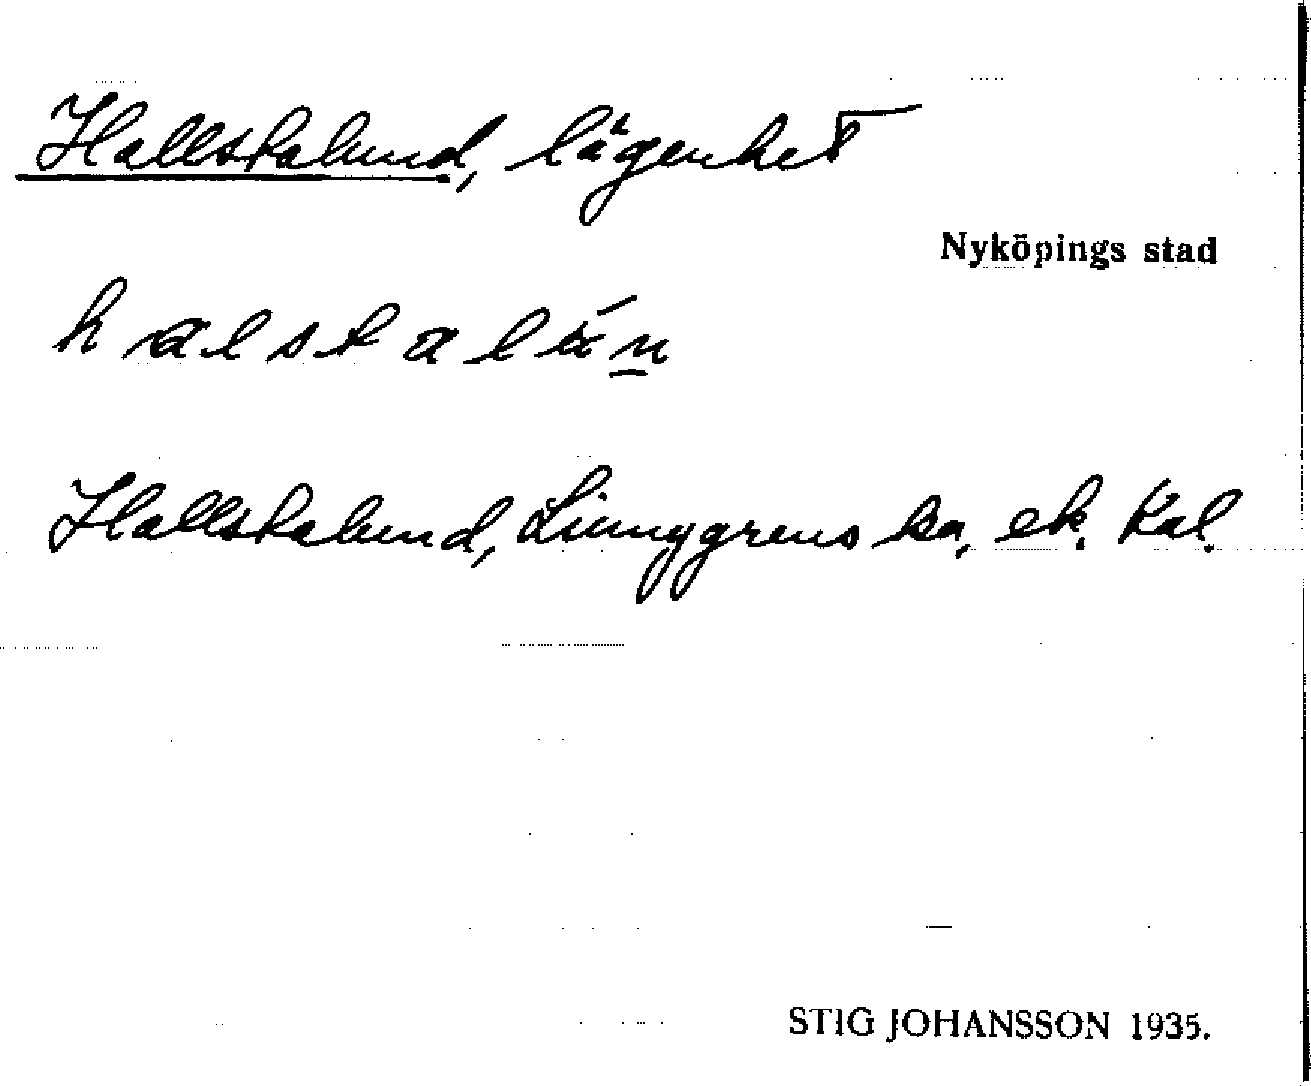 Hallstalund, lägenhet
Nyköpings stad
Hallstalund, Ljunggrens ka, ek. kal.
STIG JOHANSSON 1935.